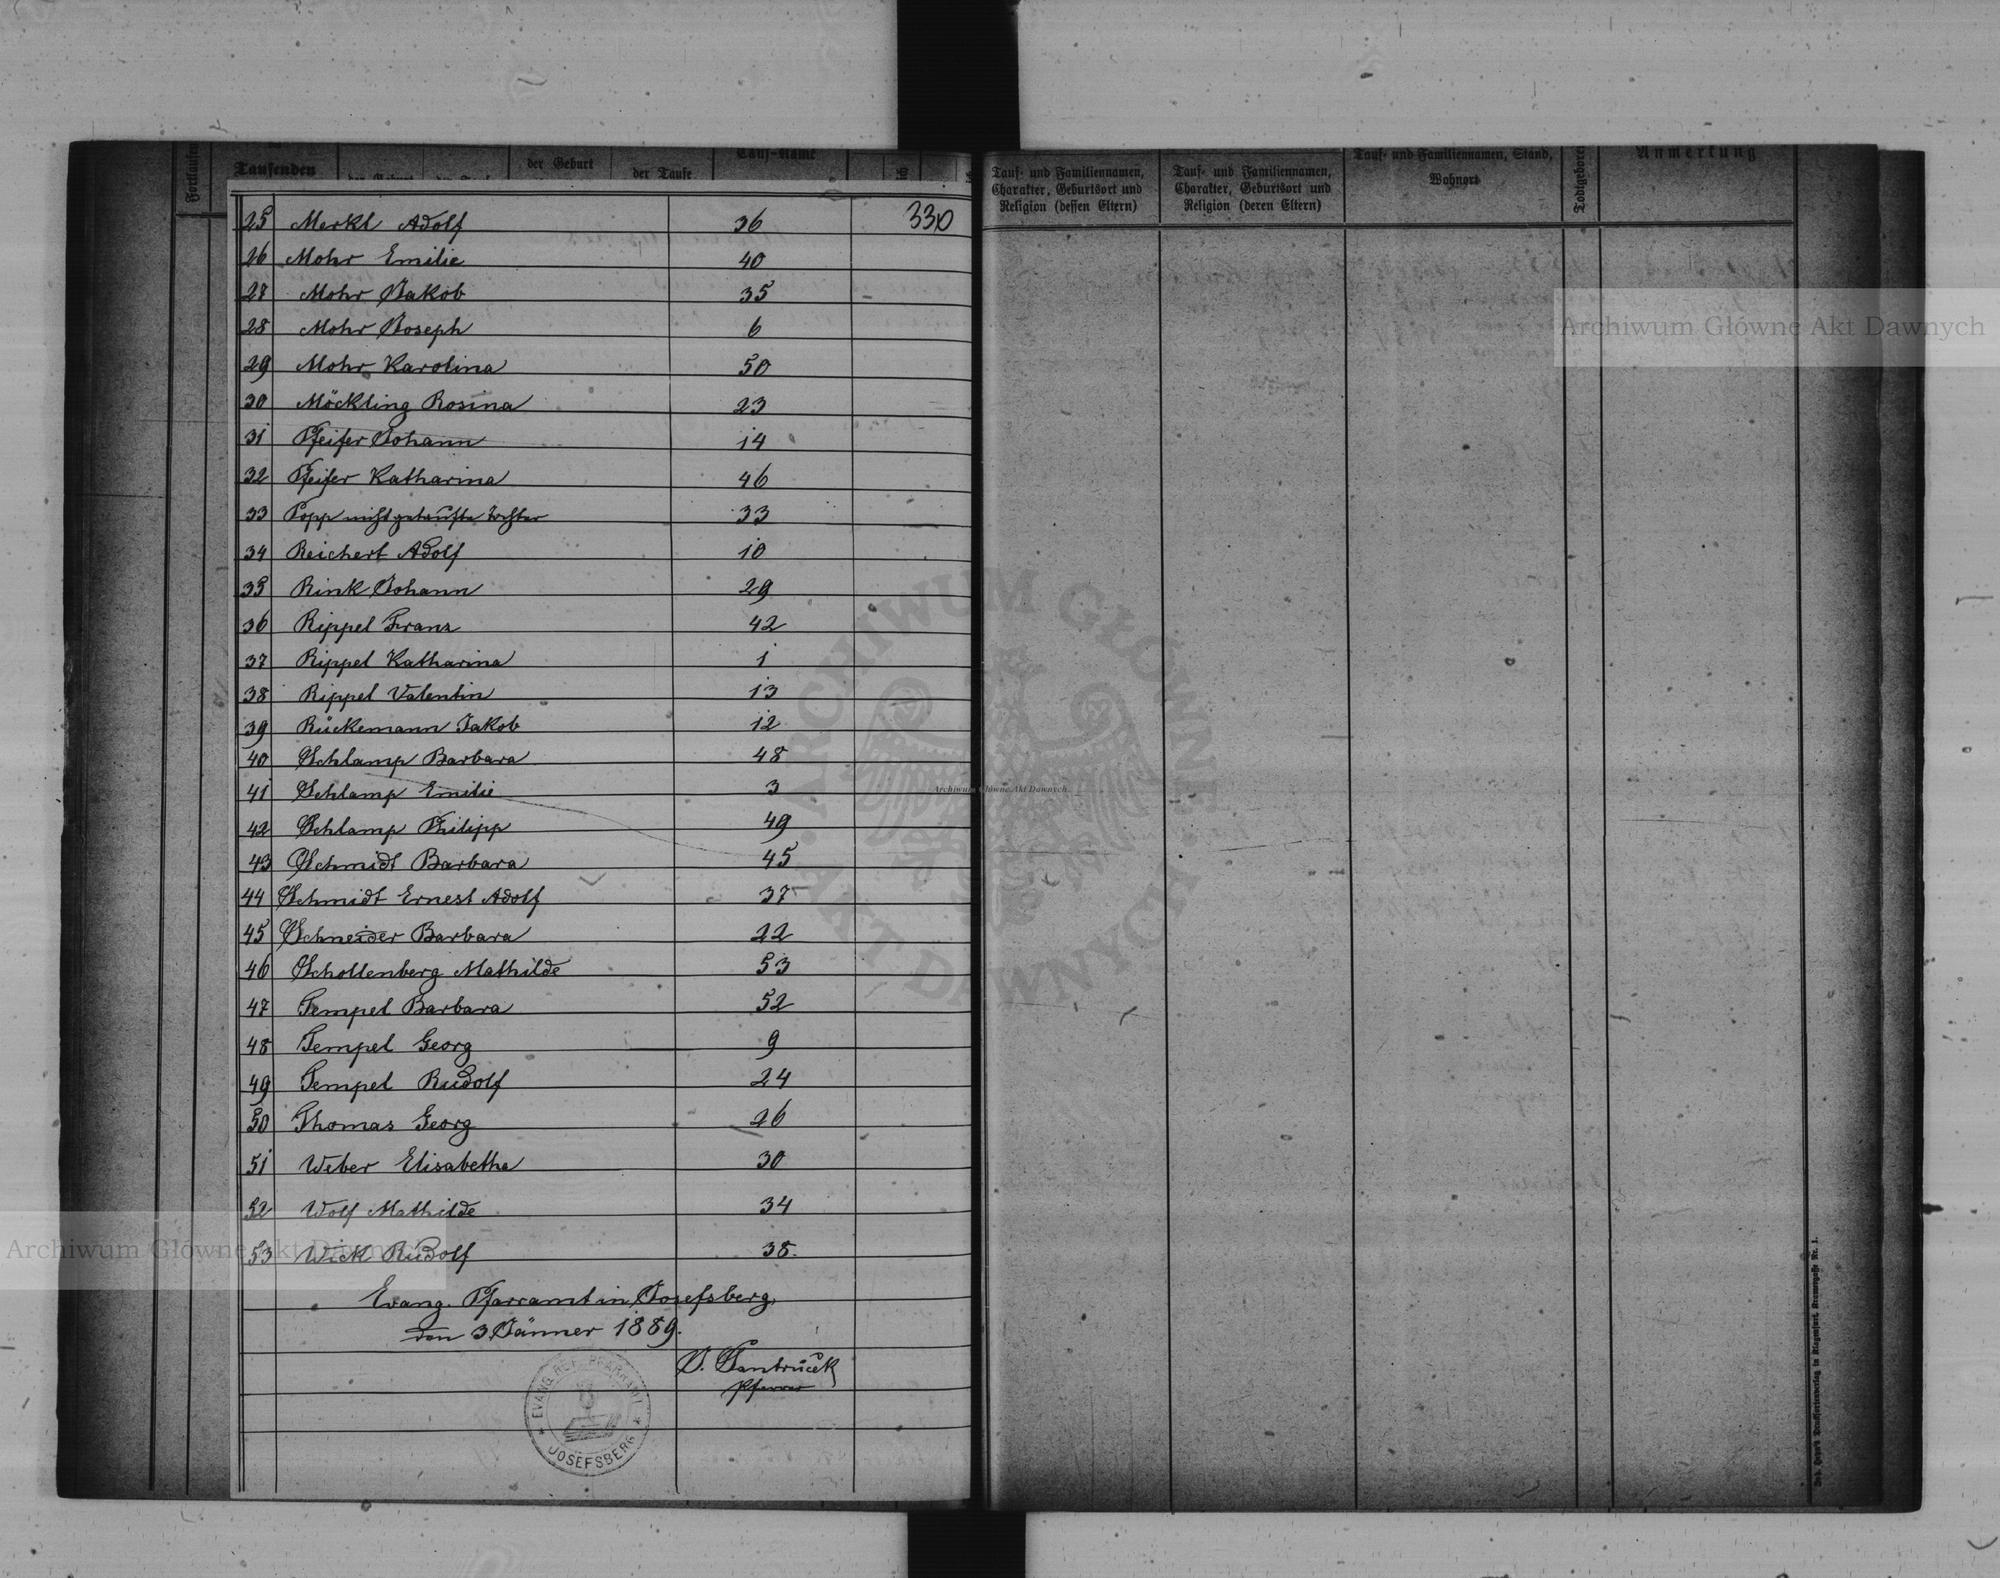 Taufenden
der Geburt
der Taufe
Tauf-Name
330
25 Merkl Adolf 36
26 Mohr Emilie 40
27 Mohr Jakob 35
28 Mohr Joseph 6
29 Mohr Karolina 50
30 Möckling Rosina 23
31 Pfeifer Johann 14
32 Pfeifer Katharina 46
33 Popp nicht getaufte Tochter 33
34 Reichert Adolf 10
35 Rink Johann 29
36 Rippel Franz 42
37 Rippel Katharina 1
38 Rippel Valentin 13
39 Rückemann Jakob 12
40 Schlamp Barbara 48
41 Schlamp Emilie 3
42 Schlamp Philipp 49
43 Schmidt Barbara 45
44 Schmidt Ernest Adolf 37
45 Schneider Barbara 22
46 Schollenberg Mathilde 53
47 Tempel Barbara 52
48 Tempel Georg 9
49 Tempel Rudolf 24
50 Thomas Georg 26
51 Weber Elisabetha 30
52 Wolf Mathilde 34
53 Wick Rudolf 38.
Evang. Pfarramt in Josefsberg,
den 3 Jänner 1889.
Pfarrer
EVANG. REF. PFARRAMT
JOSEFSBERG
Tauf- und Familiennamen,
Charakter, Geburtsort und
Religion (dessen Eltern)
Tauf- und Familiennamen,
Charakter, Geburtsort und
Religion (deren Eltern)
Tauf- und Familiennamen, Stand,
Wohnort
Todtgeboren
Anmerkung
Archiwum Główne Akt Dawnych
Archiwum Główne Akt Dawnych
Archiwum Główne Akt Dawnych
ARCHIWUM GŁÓWNE AKT DAWNYCH